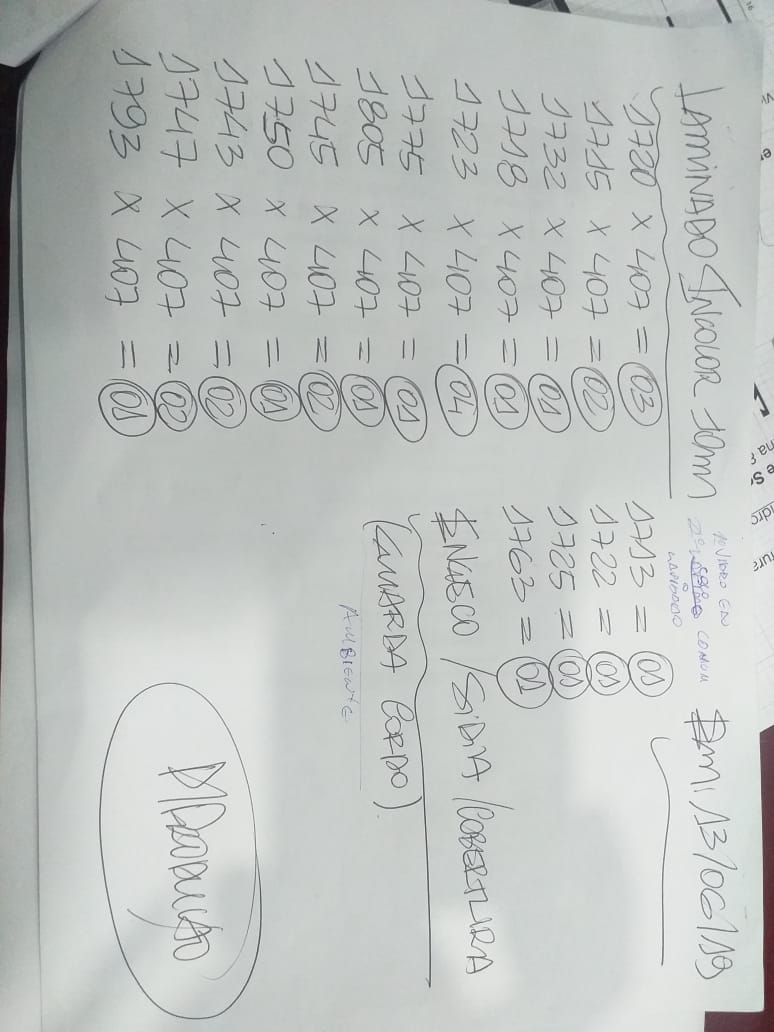 LAMINADO INCOLOR 10mm
Em, 13/06/19
1º VIDRO EM
COMUM
1720 x 407 = 03
1715 x 407 = 02
1732 x 407 = 01
1718 x 407 = 01
1723 x 407 = 04
1775 x 407 = 01
1805 x 407 = 01
1745 x 407 = 02
1750 x 407 = 01
1743 x 407 = 02
1747 x 407 = 02
1793 x 407 = 01
1713 = 01
1722 = 01
1725 = 01
1763 = 01
ENASCO / SIDIA / COBERTURA
(GUARDA CORPO)
AMBIENTE
P/PRODUÇÃO